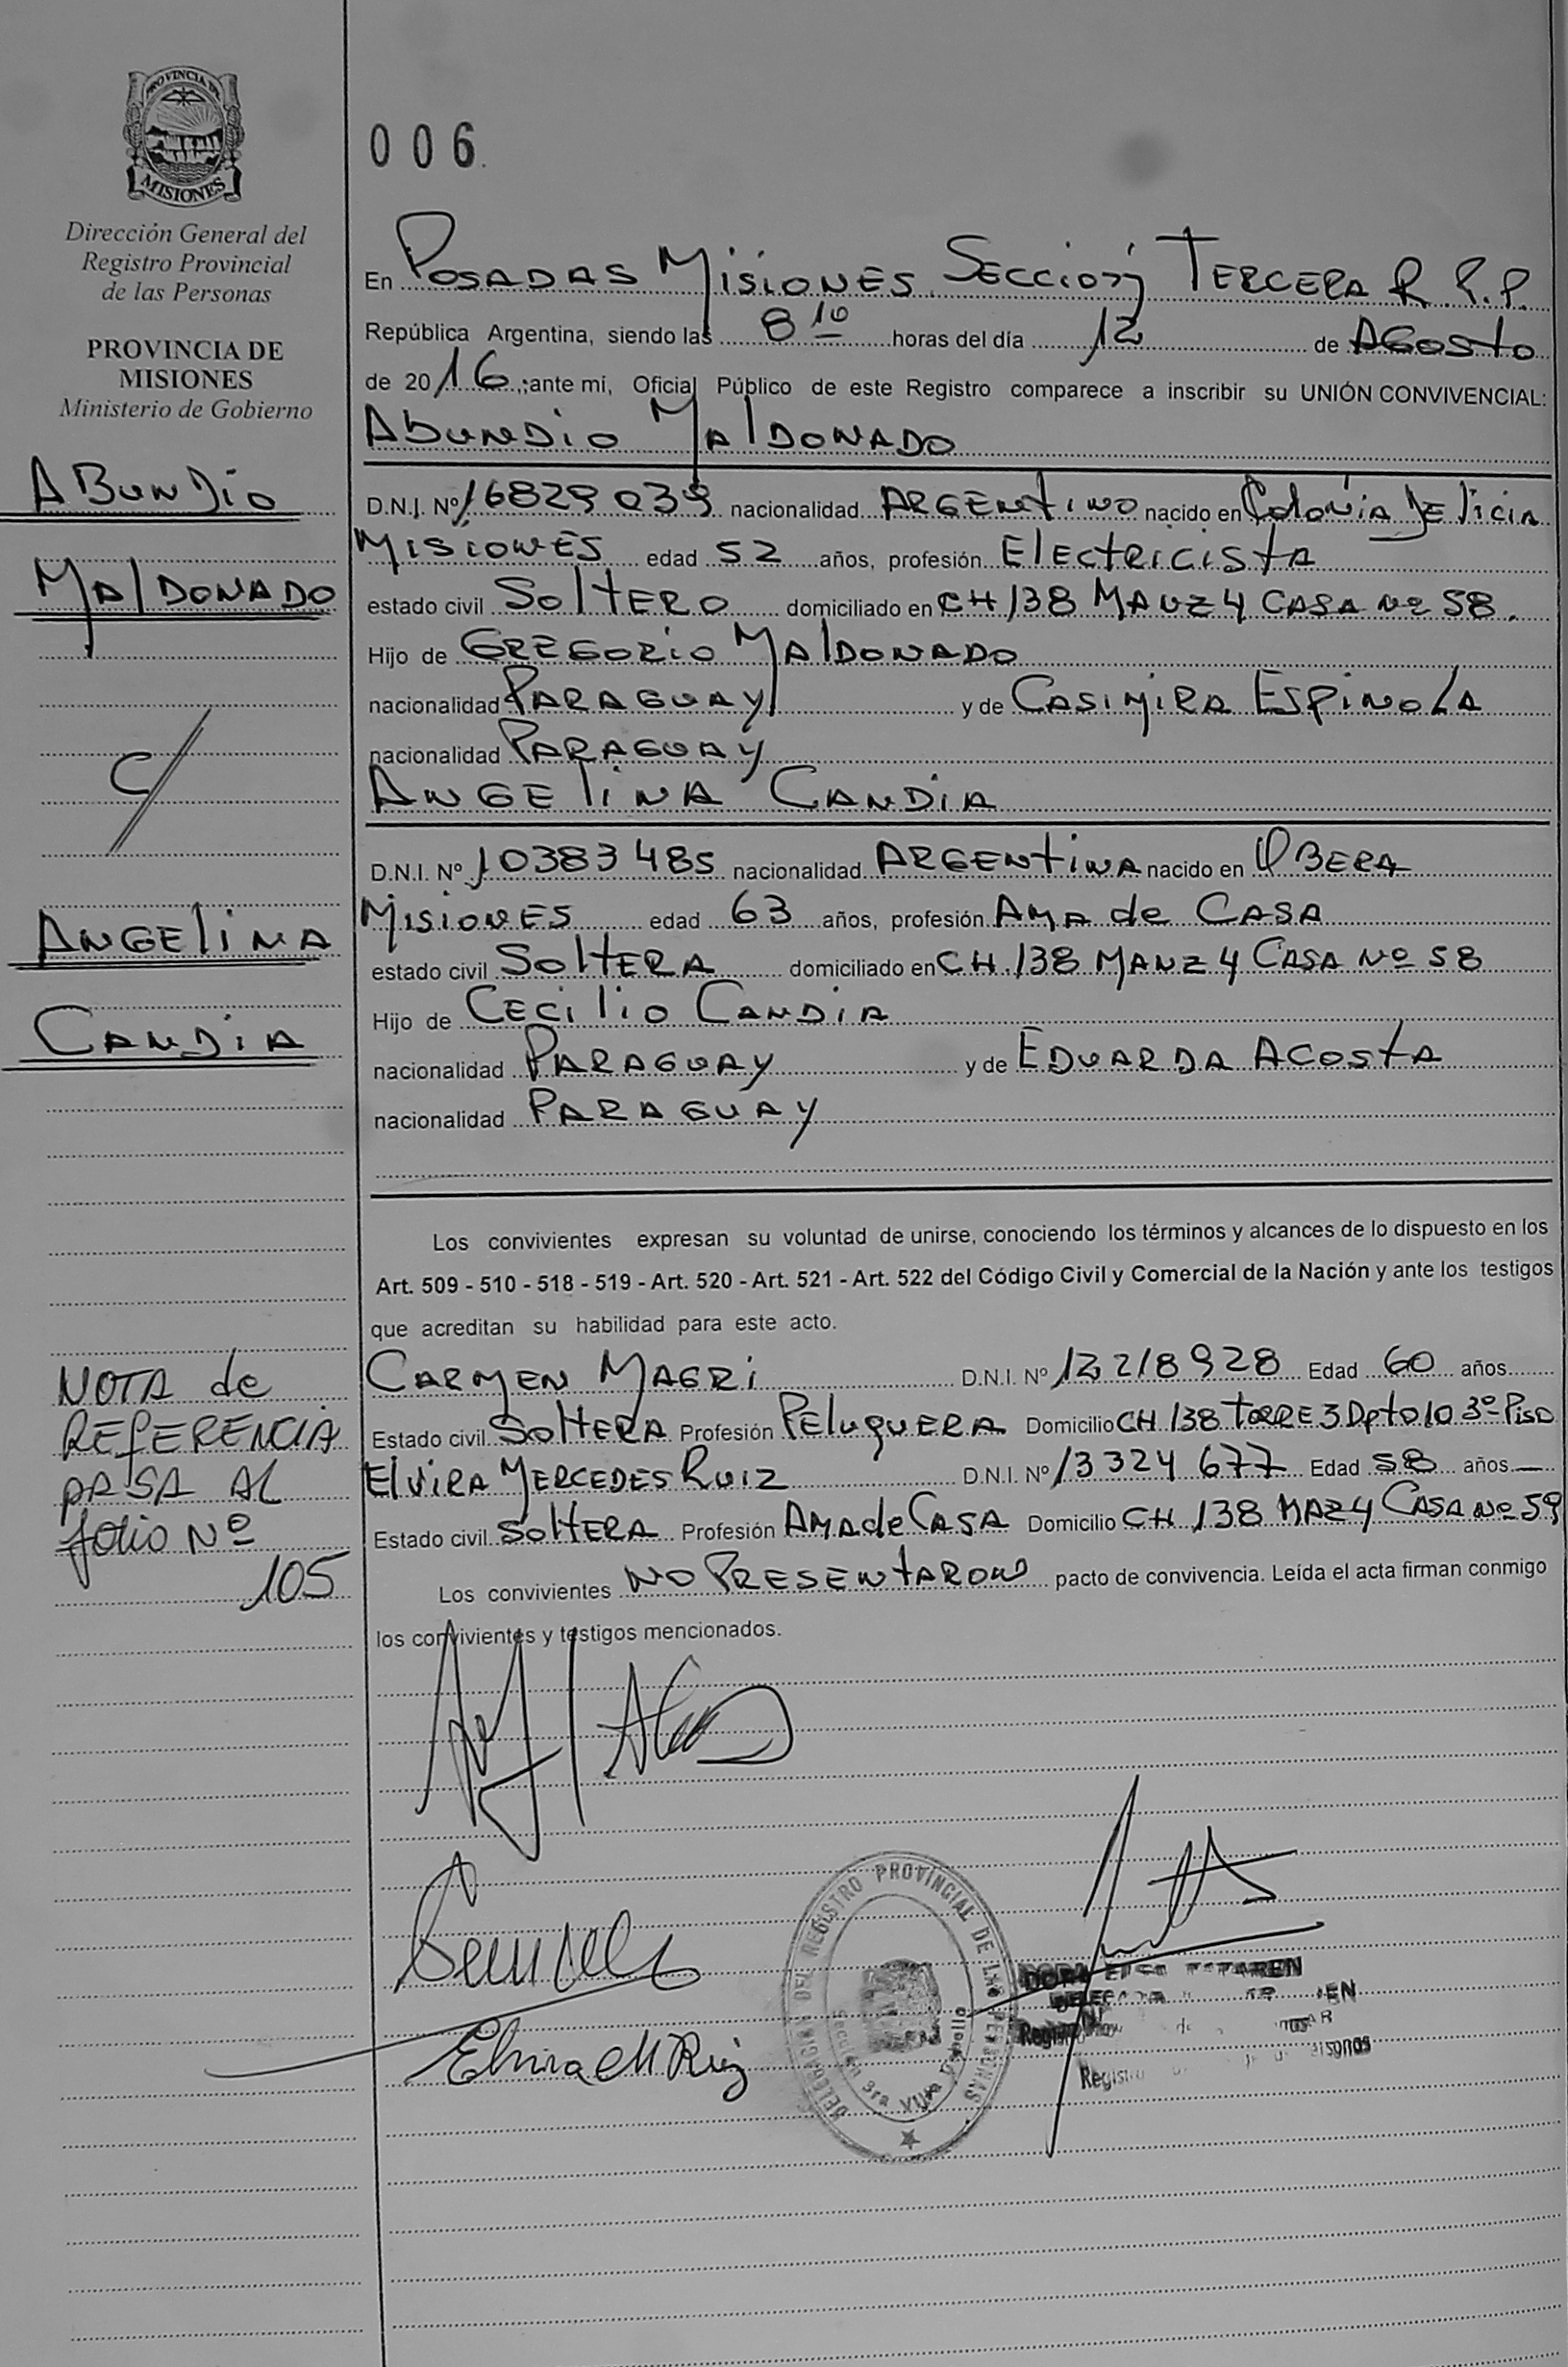 PROVINCIA DE
MISIONES
Dirección General del
Registro Provincial
de las Personas
PROVINCIA DE
MISIONES
Ministerio de Gobierno
ABUNDIO
MALDONADO
C/
ANGELINA
CANDIA
NOTA de
REFERENCIA
PASA AL
folio Nº
105
006
En POSADAS MISIONES SECCIÓN TERCERA R.P.P.
República Argentina, siendo las 8 10 horas del día 12 de AGOSTO
de 2016 ;ante mí, Oficial Público de este Registro comparece a inscribir su UNIÓN CONVIVENCIAL:
ABUNDIO MALDONADO
D.N.I. Nº 16829039 nacionalidad ARGENTINO nacido en Colonia Delicia
MISIONES edad 52 años, profesión ELECTRICISTA
estado civil SOLTERO domiciliado en CH 138 MANZ 4 CASA Nº 58.
Hijo de GREGORIO MALDONADO
nacionalidad PARAGUAY y de CASIMIRA ESPINOLA
nacionalidad PARAGUAY
ANGELINA CANDIA
D.N.I. Nº 10383485 nacionalidad ARGENTINA nacido en OBERA
MISIONES edad 63 años, profesión AMA de CASA
estado civil SOLTERA domiciliado en CH.138 MANZ 4 CASA Nº 58
Hijo de CECILIO CANDIA
nacionalidad PARAGUAY y de EDUARDA ACOSTA
nacionalidad PARAGUAY
Los convivientes expresan su voluntad de unirse, conociendo los términos y alcances de lo dispuesto en los
Art. 509 - 510 - 518 - 519 - Art. 520 - Art. 521 - Art. 522 del Código Civil y Comercial de la Nación y ante los testigos
que acreditan su habilidad para este acto.
CARMEN MAGRI D.N.I. Nº 12218928 Edad 60 años
Estado civil SOLTERA Profesión PELUQUERA Domicilio CH 138 TORRE 3 Dpto 10 3º PISO
ELVIRA MERCEDES RUIZ D.N.I. Nº 13324677 Edad 58 años
Estado civil SOLTERA Profesión AMA de CASA Domicilio CH 138 MAZ 4 CASA Nº 59
Los convivientes NO PRESENTARON pacto de convivencia. Leída el acta firman conmigo
los convivientes y testigos mencionados.
Elvira M Ruiz
DELEGACIÓN DEL REGISTRO PROVINCIAL DE LAS PERSONAS
Sección 3ra Villa
DORA